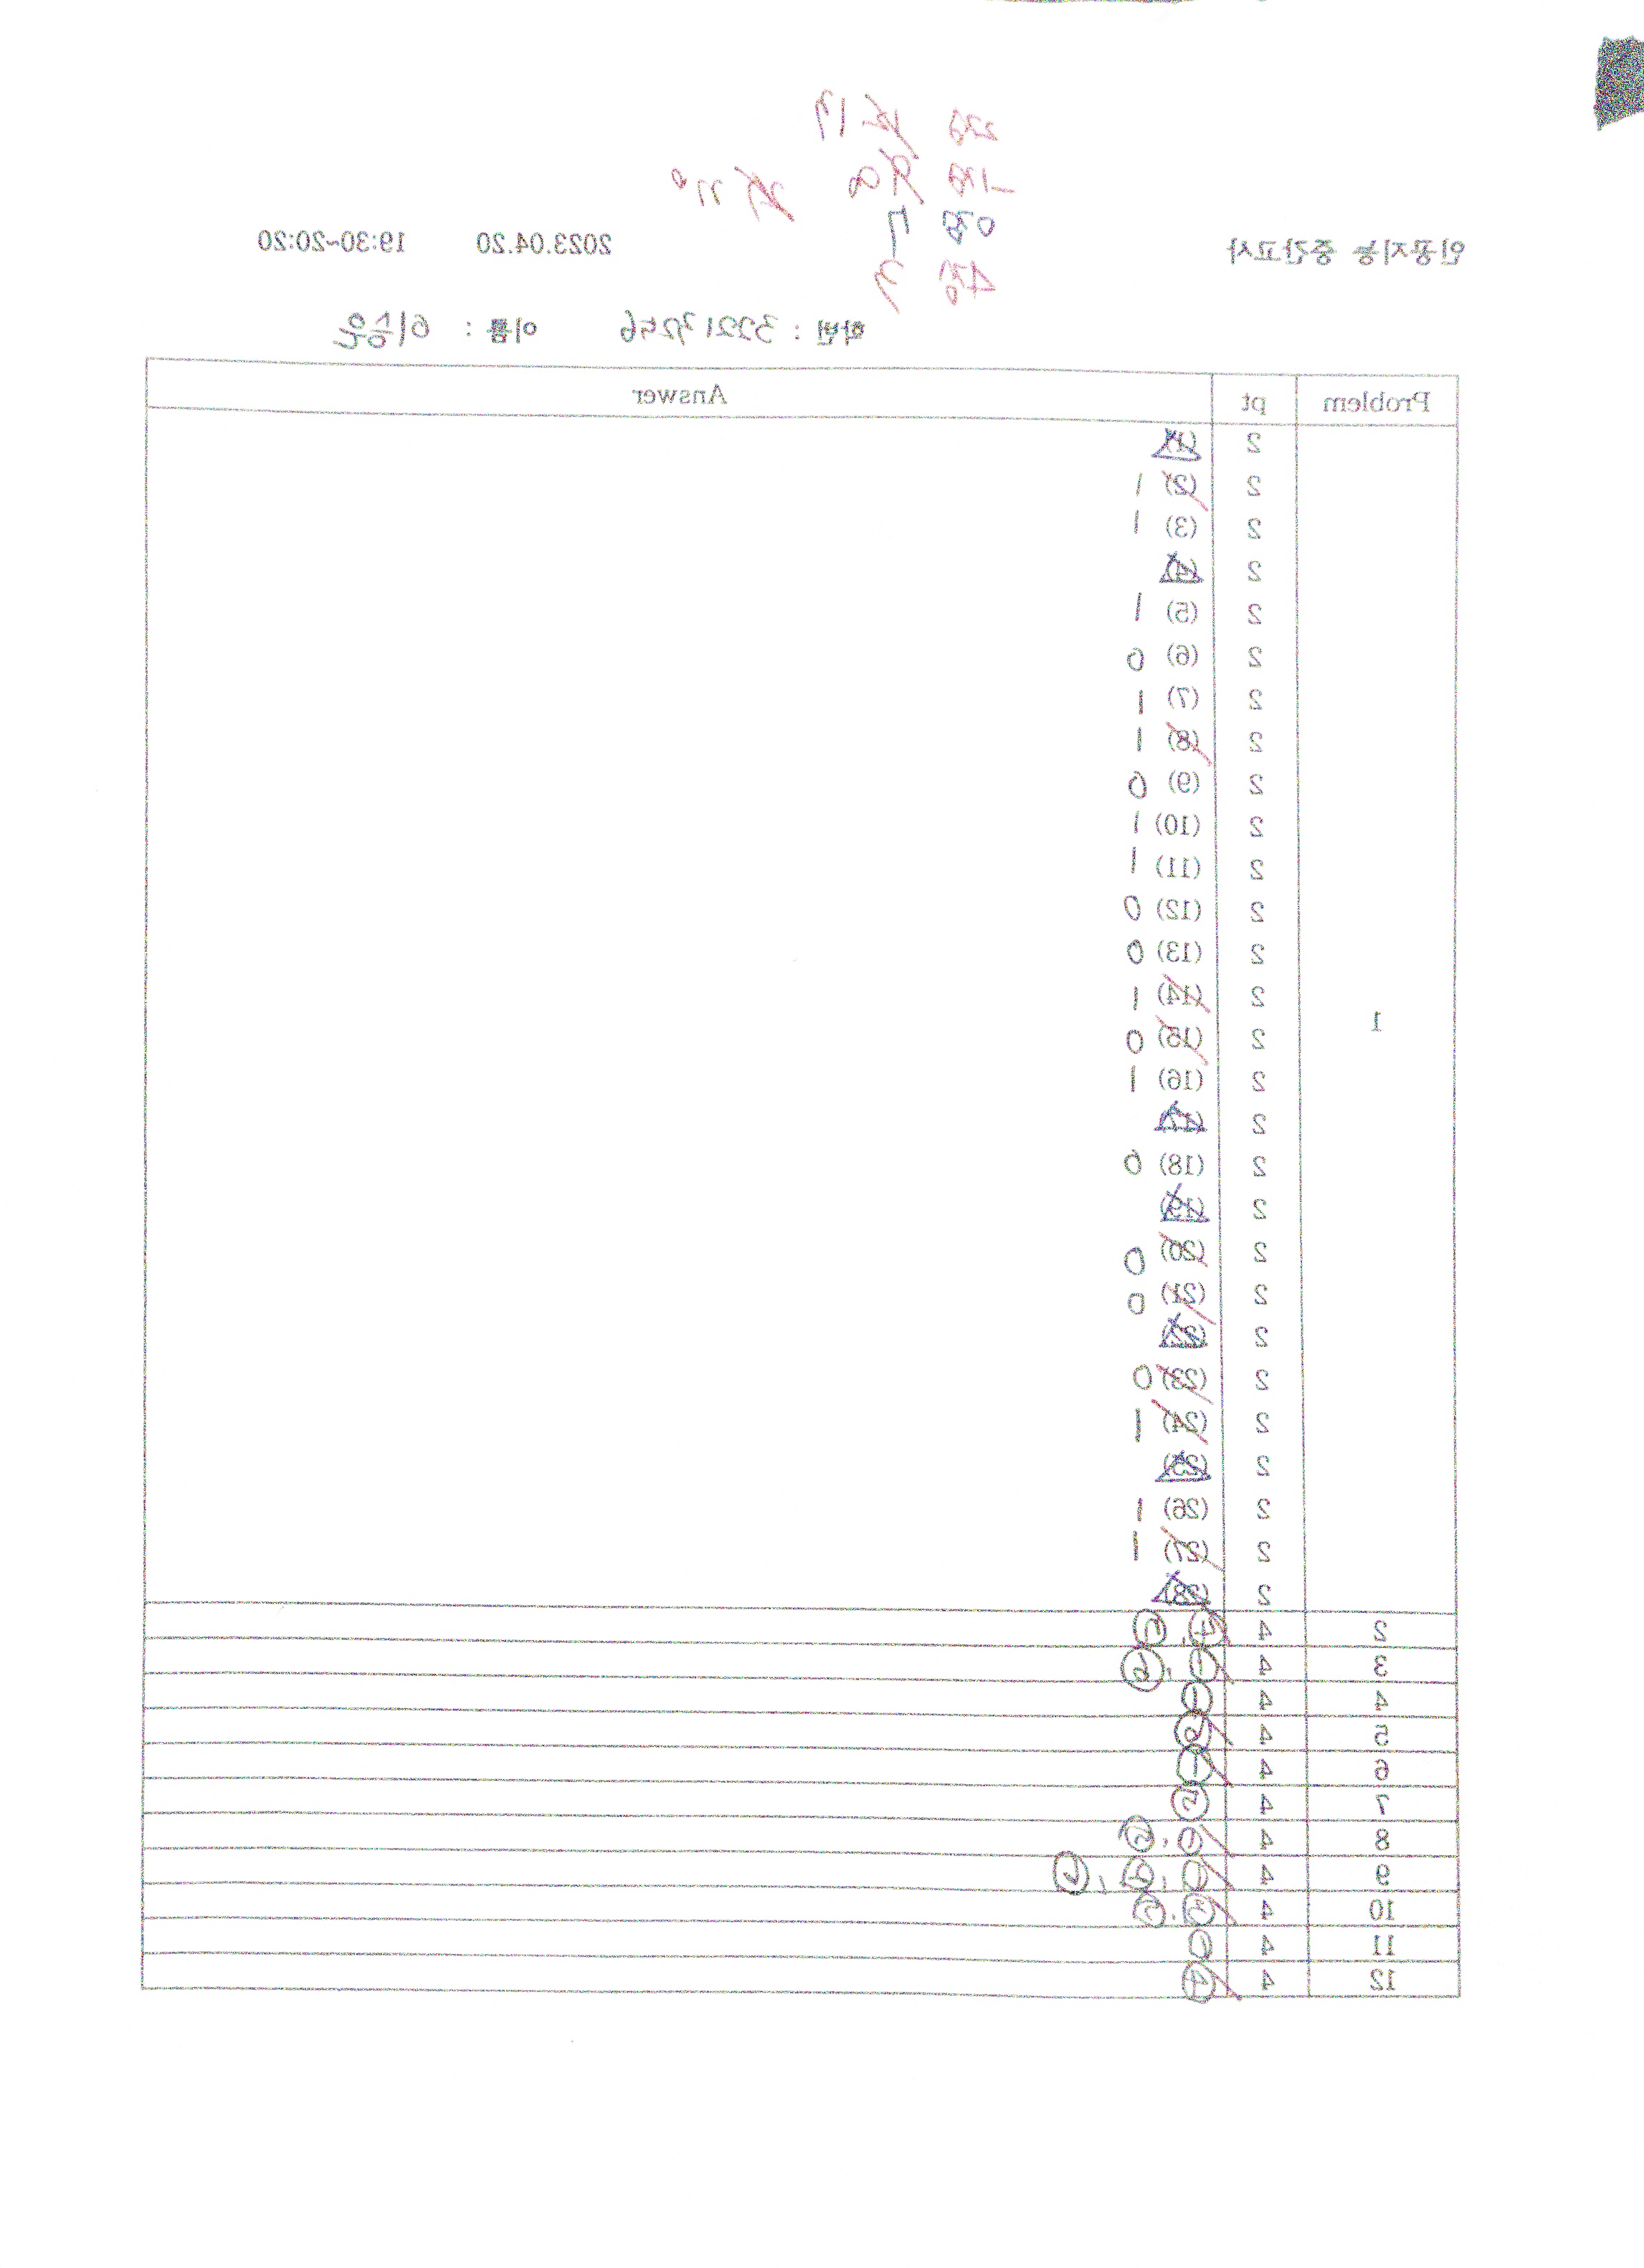 인공지능 중간고사 2023.04.20 19:30~20:20
학번 : 이름 :
Problem pt Answer
1
2 (1)
2 (2) 1
2 (3) 1
2 (4)
2 (5) 1
2 (6) 0
2 (7) 1
2 (8) 1
2 (9) 0
2 (10) 1
2 (11) 1
2 (12) 0
2 (13) 0
2 (14) 1
2 (15) 0
2 (16) 1
2 (17)
2 (18) 0
2 (19)
2 (20) 0
2 (21) 0
2 (22)
2 (23) 0
2 (24) 1
2 (25)
2 (26) 1
2 (27) 1
2 (28)
2 4
3 4 ①, ②
4 4 ①
5 4 ②
6 4 ①
7 4 ②
8 4 ①, ②
9 4 ①
10 4
11 4 ①
12 4 ④